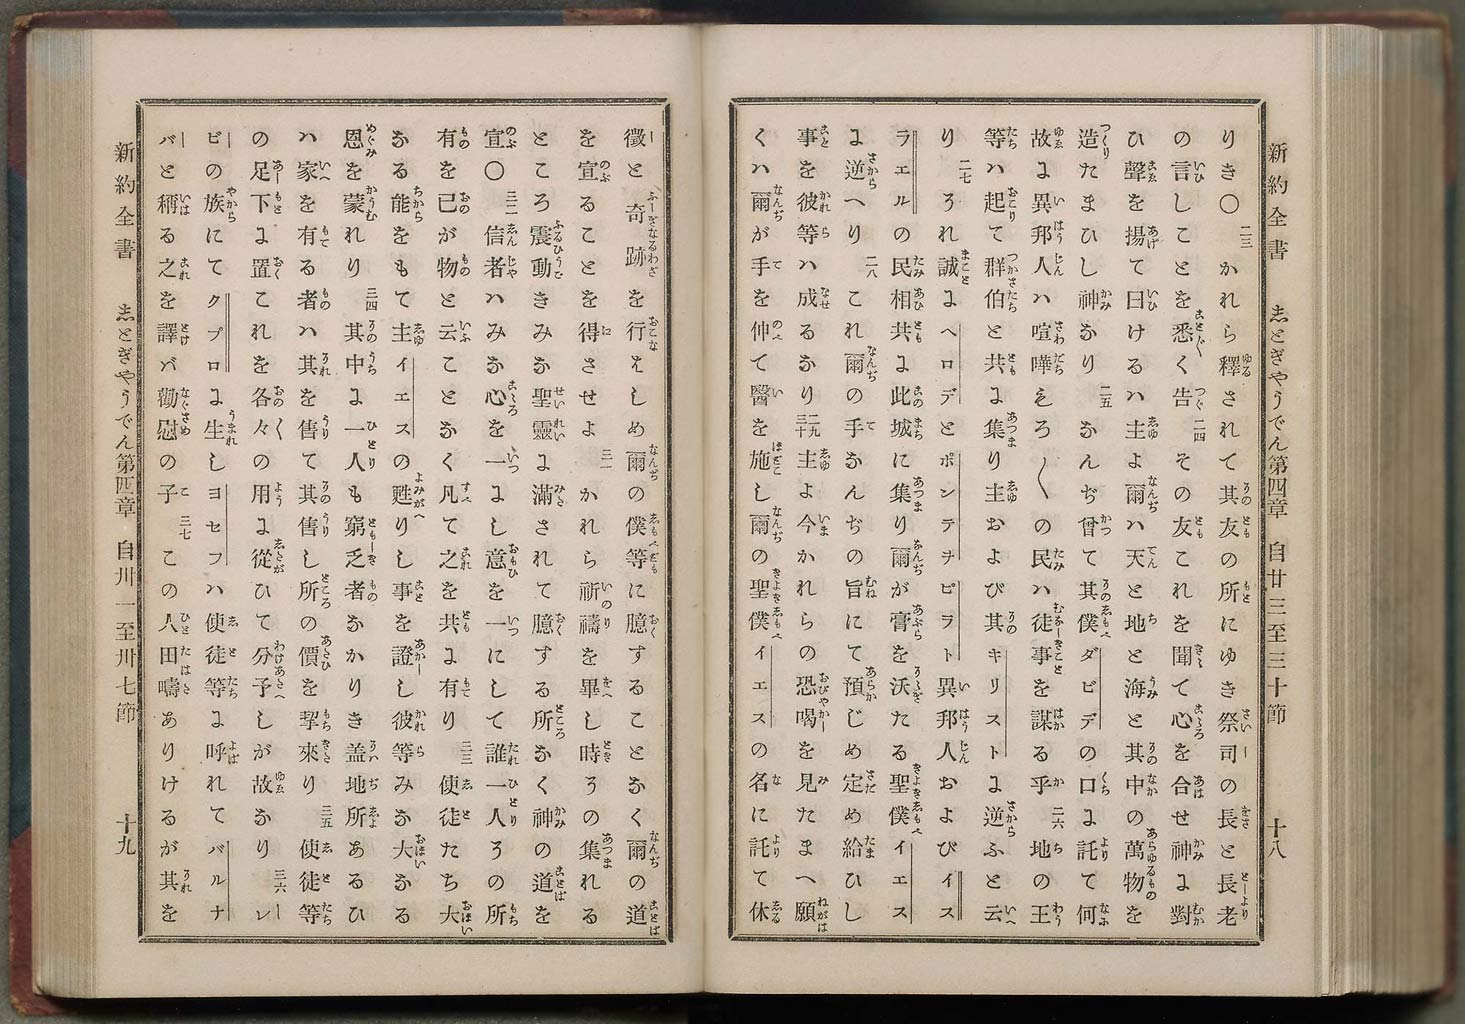 新約全書 志とぎやうでん第四章 自廿三至三十節 十八
りき〇二三かれら釋されて其友の所にゆき祭司の長と長老
の言しことを悉く告二四その友これを聞て心を合せ神に對
ひ聲を揚て曰けるハ主よ爾ハ天と地と海と其中の萬物を
造たまひし神なり二五なんぢ曾て其僕ダビデの口に託て何
故に異邦人ハ喧嘩ぞろ〳〵の民ハ徒事を謀る乎二六地の王
等ハ起て群伯と共に集り主および其キリストに逆ふと云
り二七それ誠にヘロデとポンテヲピラト異邦人およびイス
ラエルの民相共に此城に集り爾が膏を沃たる聖僕イエス
に逆へり二八これ爾の手なんぢの旨にて預じめ定め給ひし
事を彼等ハ成るなり二九三十主よ今かれらの恐喝を見たまへ願
くハ爾が手を伸て醫を施し爾の聖僕イエスの名に託て休
徴と奇跡を行ハしめ爾の僕等に臆することなく爾の道
を宣ることを得させよ三一かれら祈禱を畢し時その集れる
ところ震動きみな聖靈に滿されて臆する所なく神の道を
宣〇三二信者ハみな心を一にし意を一にして誰一人その所
有を己が物と云ことなく凡て之を共に有り三三使徒たち大
なる能をもて主イエスの甦りし事を證し彼等みな大なる
恩を蒙れり三四其中に一人も窮乏者なかりき盖地所あるひ
ハ家を有る者ハ其を售て其售し所の價を挈來り三五使徒等
の足下に置これを各々の用に從ひて分予しが故なり三六レ
ビの族にてクプロに生しヨセフハ使徒等に呼れてバルナ
バと稱る之を譯バ勸慰の子三七この人田疇ありけるが其を
新約全書 志とぎやうでん第四章 自卅一至卅七節 十九